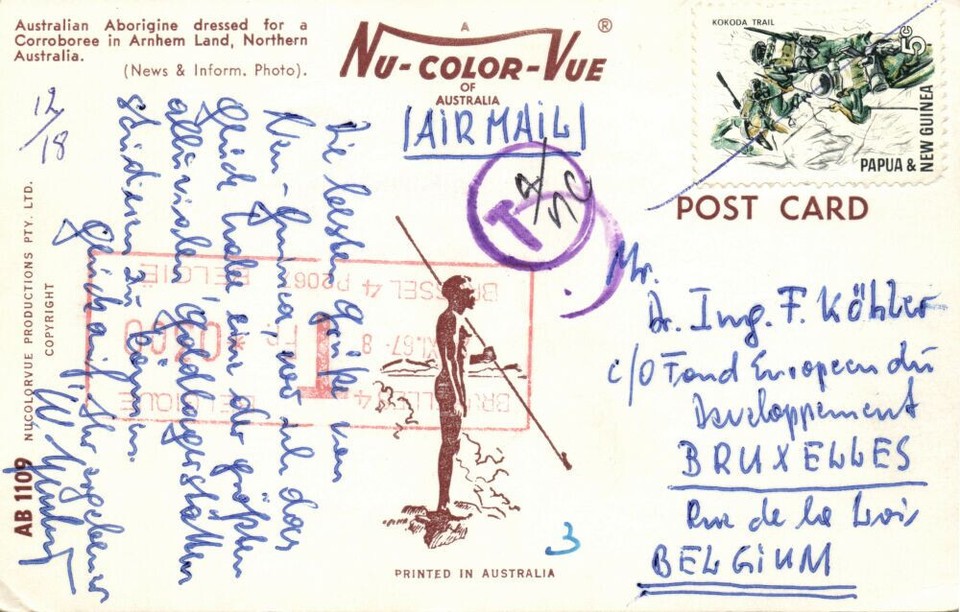 Australian Aborigine dressed for a
Corroboree in Arnhem Land, Northern
Australia.
(News & Inform. Photo).
A
NU-COLOR-VUE ®
OF
AUSTRALIA
KOKODA TRAIL
5c
PAPUA &
NEW GUINEA
AIR MAIL
POST CARD
T
12/18
Die besten Grüße von
Neu-Guinea, wo ich das
Glück habe eine der größten
alluvialen Goldlagerstätten
studieren zu können.
Glückauf, Ihr ergebener
W.
Mr.
Dr. Ing. F. Köhler
c/o Fond Européen du
Developpement
BRUXELLES
Rue de la Loi
BELGIUM
BRUSSEL 4 P2067 BELGIË
T Fr 0300
BRUXELLES 4 BELGIQUE
3
NUCOLORVUE PRODUCTIONS PTY. LTD.
COPYRIGHT
AB 1109
PRINTED IN AUSTRALIA